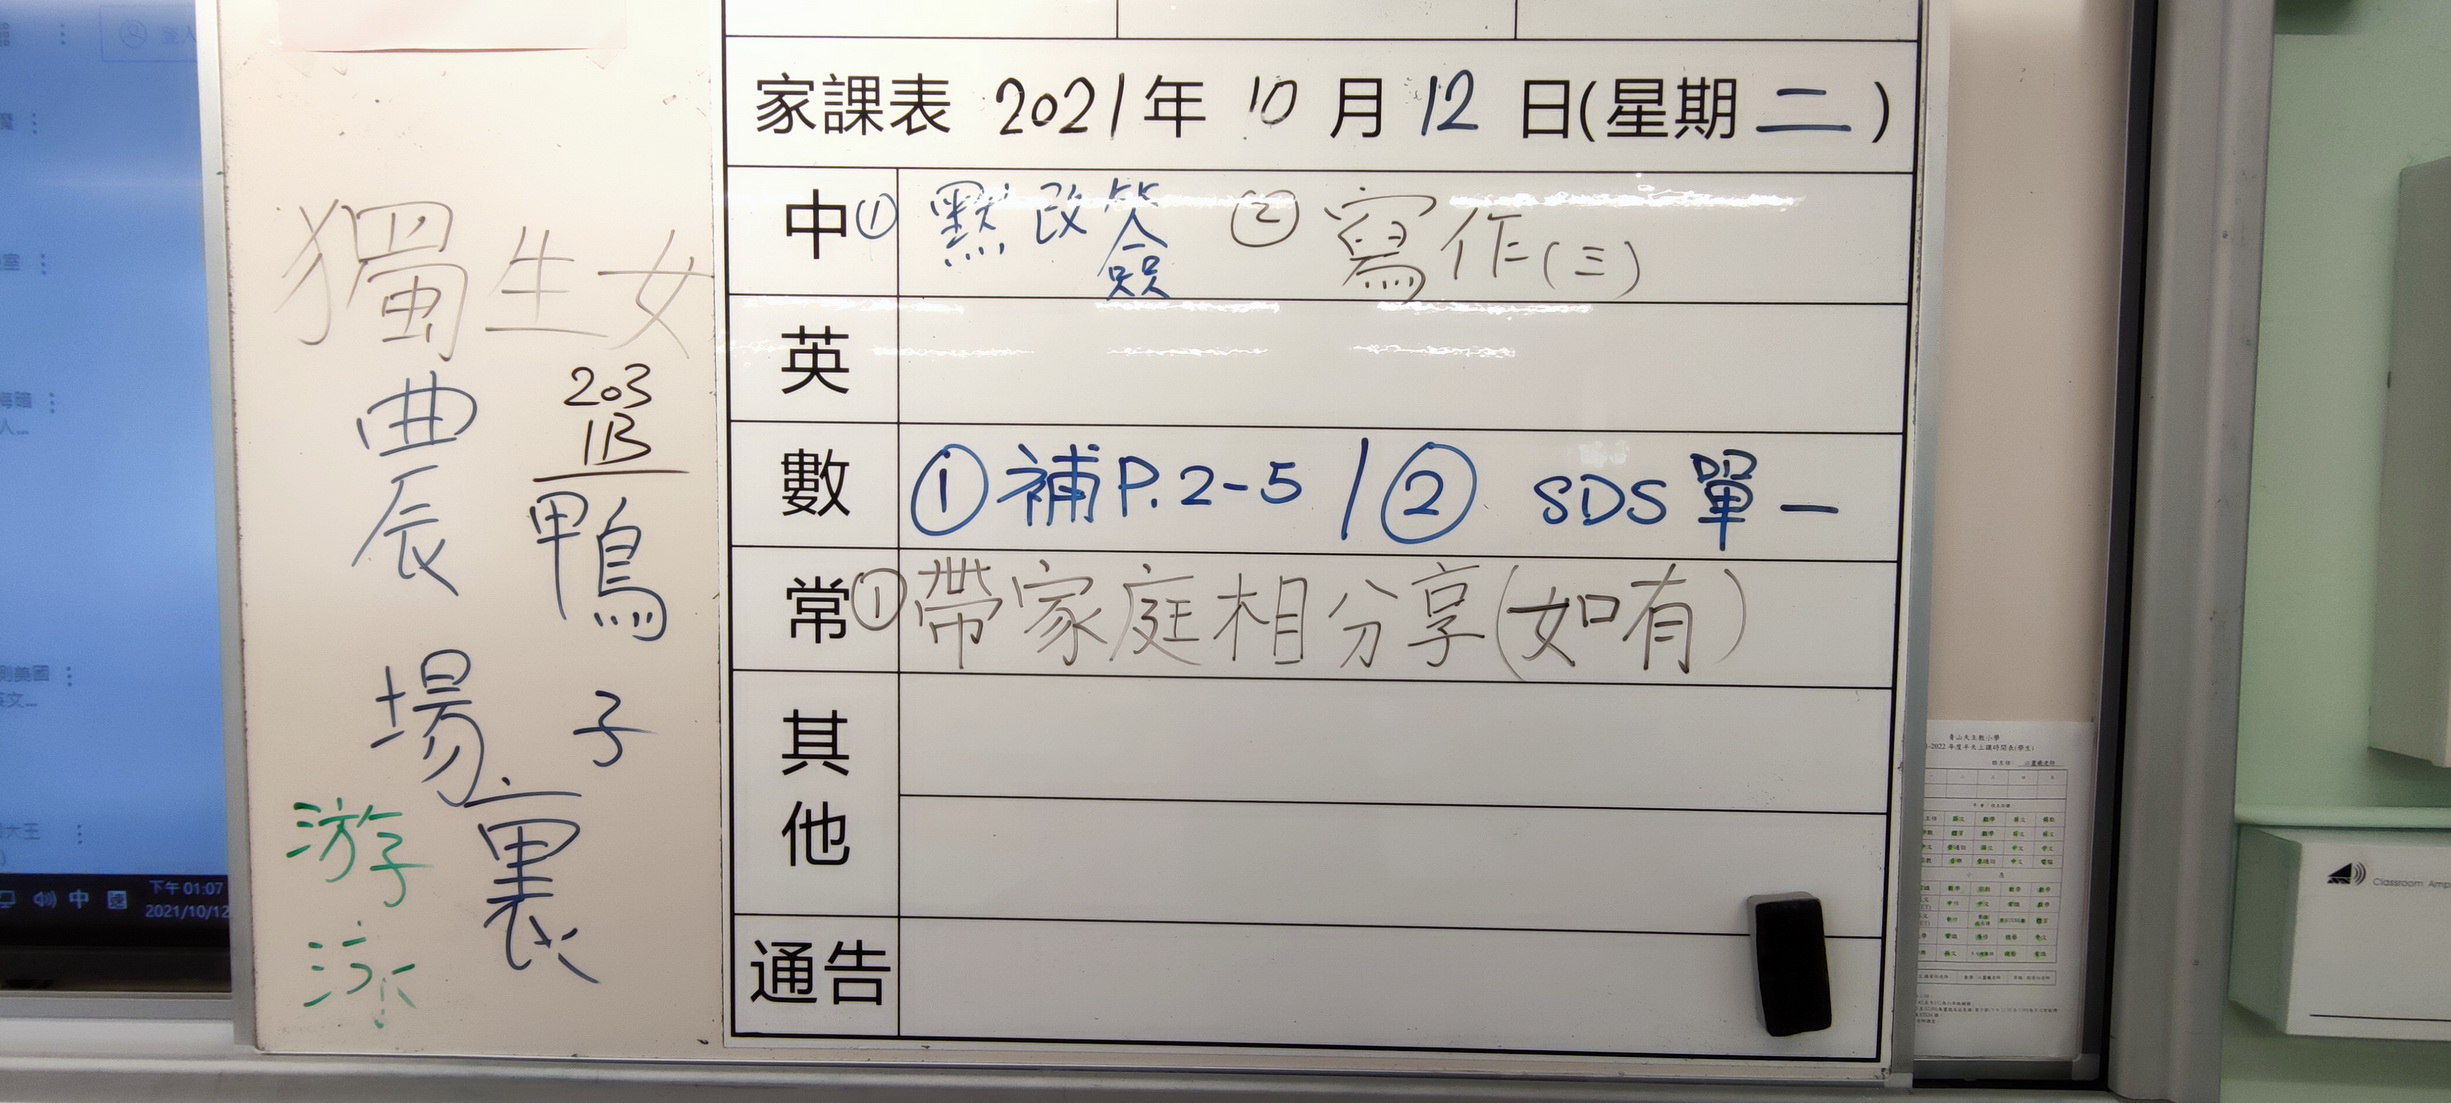 家課表 2021年 10 月 12 日(星期 二 )
中 ① 默改簽 ② 寫作(三)
英
數 ① 補P.2-5 / ② SDS 單一
常 ① 帶家庭相分享(如有)
其他
通告
獨生女
農場裏
203
1B
鴨子
游泳
登入
中
下午 01:07
2021/10/12
青山天主教小學
Classroom